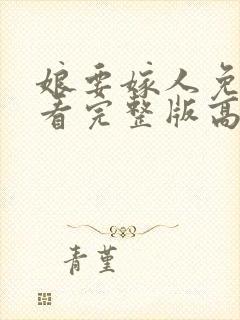 娘要嫁人免
看完整版高
青堇